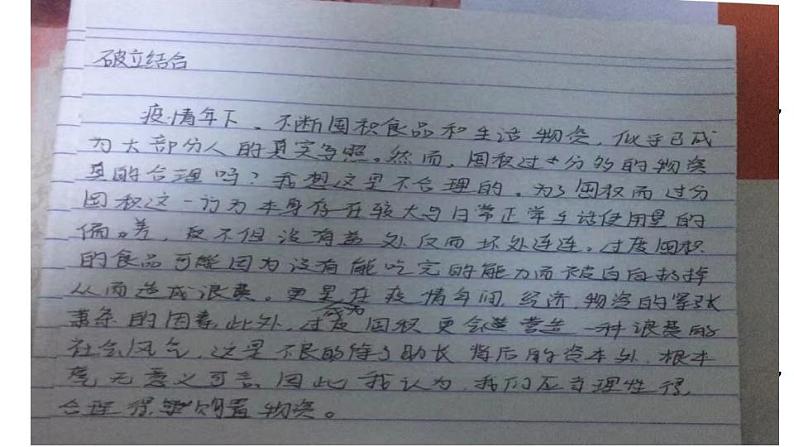 破立结合
疫情年下、不断囤积食品和生活物资，似乎已成
为大部分人的真实写照。然而，囤积过十分多的物资
真的合理吗？我想这是不合理的。为了囤积而过分
囤积这一行为本身存在较大与日常正常生活使用量的
偏差，反不但没有益处反而坏处连连。过度囤积
的食品可能因为没有能吃完的能力而被白白扔掉
从而造成浪费。更是在疫情年间，经济、物资的紧张
萧条的因素。此外，过度囤积更会营造一种浪费的
社会风气，这是不良的除了助长背后的资本外，根本
毫无意义可言。因此我认为，我们应当理性得，
合理得购置物资。